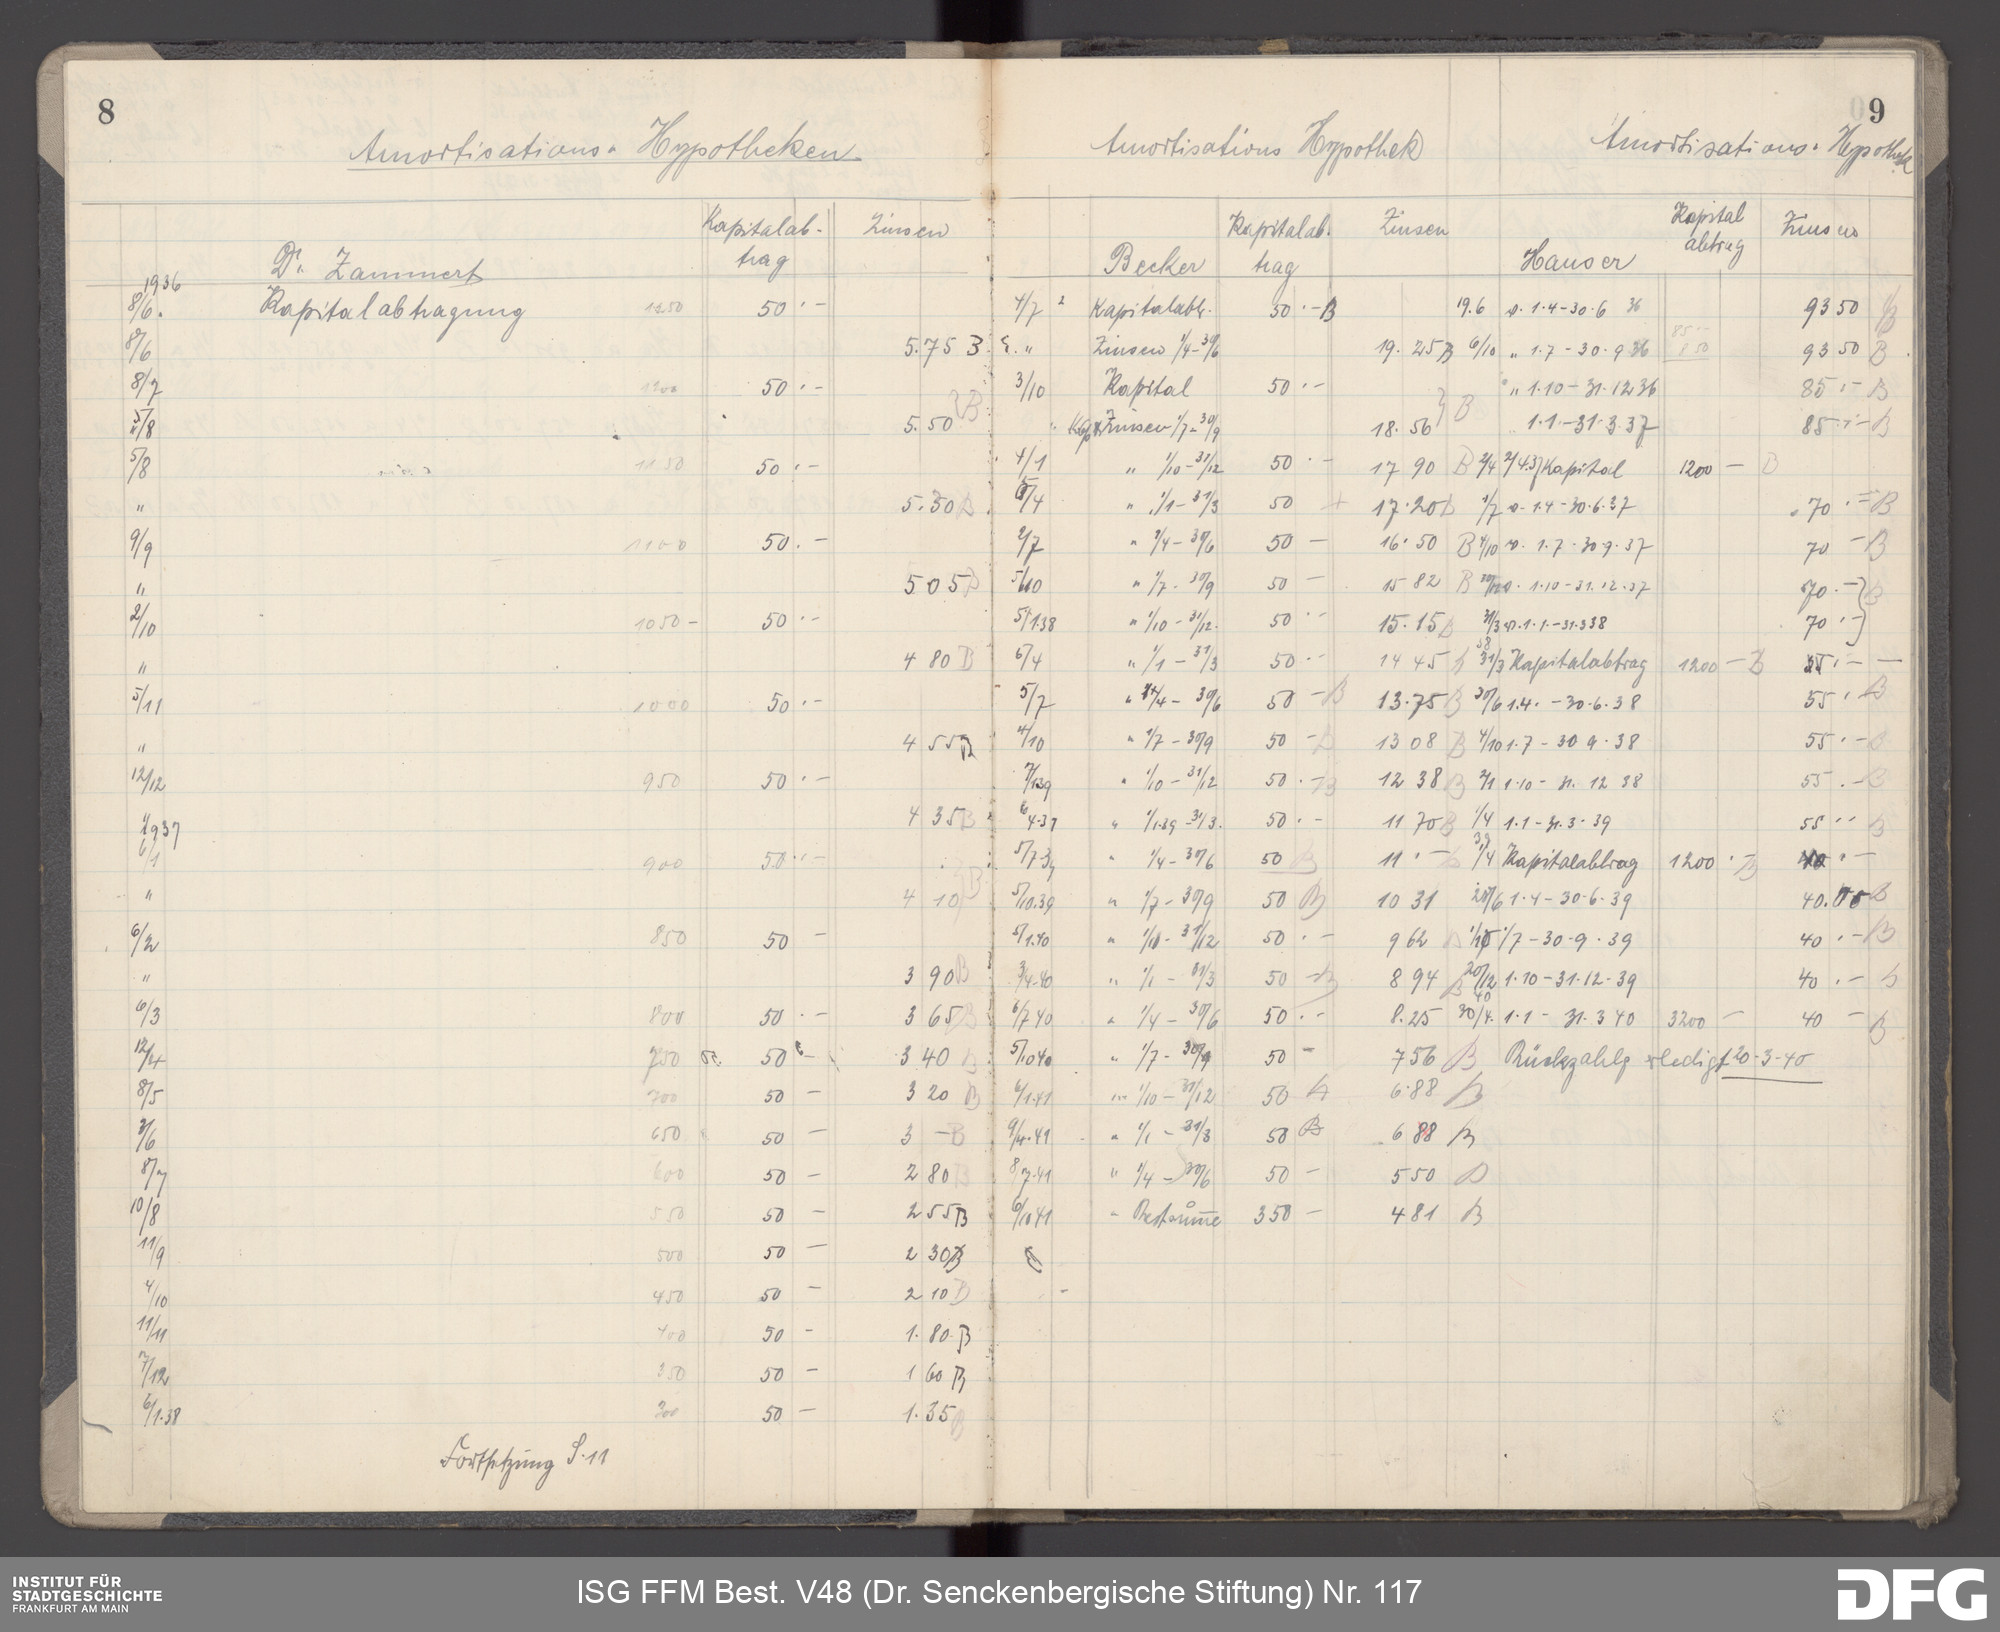 8
Amortisations-Hypotheken
Kapitalab-
trag
Zinsen
Dr. Zammert
1936
8/6. Kapitalabtragung 1250 50 . –
8/6 5.75 B
8/7 1200 50 . –
5/8 5.50 B
5/8 1150 50 . –
" 5.30 B
9/9 1100 50 . –
" 505 B
2/10 1050 – 50 . –
" 4 80 B
5/11 1000 50 . –
" 4 55 B
12/12 950 50 . –
4 35 B
1937
6/1 900 50 . –
" 4 10 B
6/2 850 50 –
" 3 90 B
6/3 800 50 . – 3 65 B
12/4 750 50 – 3 40 B
8/5 700 50 – 3 20 B
/6 650 50 – 3 – B
8/7 600 50 – 2 80 B
10/8 550 50 – 2 55 B
11/9 500 50 – 2 30 B
4/10 450 50 – 2 10 B
11/11 400 50 – 1.80 B
7/12 350 50 – 1 60 B
6/1.38 300 50 – 1.35 B
Fortsetzung S. 11
Amortisations Hypothek
Becker
Kapitalab.
trag
Zinsen
4/7 Kapitalabtr. 50 . – B
" Zinsen 1/4 – 30/6 19.25 B
3/10 Kapital 50 . –
Zinsen 1/7 – 30/9 18.56 B
4/1 " 1/10 – 31/12 50 . – 17 90 B
/4 " 1/1 – 31/3 50 17.20 B
2/7 " 1/4 – 30/6 50 – 16.50 B
5/10 " 1/7 – 30/9 50 – 15 82 B
5/1.38 " 1/10 – 31/12. 50 . – 15.15 B
6/4 " 1/1 – 31/3 50 . – 14 45
5/7 " 1/4 – 30/6 50 – B 13.75 B
4/10 " 1/7 – 30/9 50 – B 13 08 B
7/1 39 " 1/10 – 31/12 50 . – B 12 38 B
" 1/1.39 – 31/3. 50 . – 11 70 B
5/7.39 " 1/4 – 30/6 50 B 11 . –
5/10.39 " 1/7 – 30/9 50 B 10 31
5/1.40 " 1/10 – 31/12 50 . – 9 62
3/4.40 " 1/1 – 31/3 50 – B 8 94 B
6/7 40 " 1/4 – 30/6 50 . – 8.25
5/10 40 " 1/7 – 30/9 50 – 7 56 B
6/1.41 " 1/10 – 31/12 50 6.88 B
9/4.41 " 1/1 – 31/3 50 B 6 88 B
8/7.41 " 1/4 – 30/6 50 – 5 50
6/10 41 " Restsumme 350 – 4 81 B
9
Amortisations-Hypothek
Hauser
Kapital
abtrag
Zinsen
19.6 v. 1.4 – 30.6 36 93 50 B
6/10 " 1.7 – 30.9 36 93 50 B
" 1.10 – 31.12 36 85 . – B
1.1 – 31.3.37 85 . – B
2/4 Kapital 1200 –
1/7 v. 1.4 – 30.6.37 70 . – B
4/10 v. 1.7 – 30.9.37 70 – B
v. 1.10 – 31.12.37 70 . – B
31/3 v. 1.1. – 31.3 38 70 . –
38
31/3 Kapitalabtrag 1200 – B 55 . –
30/6 1.4. – 30.6.38 55 . B
4/10 1.7 – 30 9.38 55 . –
1.10 – 31. 12 38 55 . – B
1/4 1.1 – 31.3.39 55 B
39
1/4 Kapitalabtrag 1200 . – B 40 . –
1.4 – 30.6.39 40. B
1/10 1/7 – 30.9.39 40 . – B
20/12 1.10 – 31.12.39 40 . –
40
30/4. 1.1 – 31.3 40 3200 – 40 – B
Rückzahlg erledigt 20-3-40
INSTITUT FÜR
STADTGESCHICHTE
FRANKFURT AM MAIN
ISG FFM Best. V48 (Dr. Senckenbergische Stiftung) Nr. 117
DFG